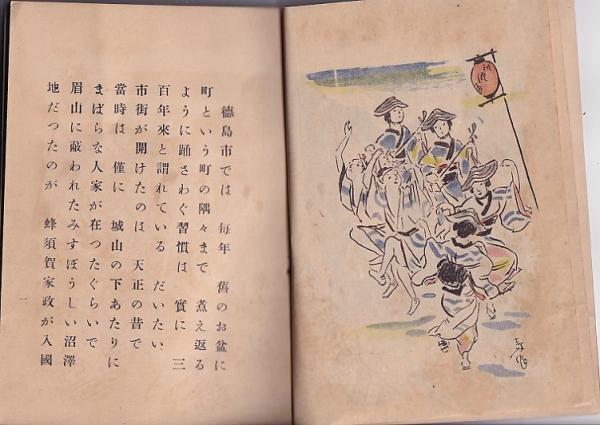 德島市では 每年 舊のお盆に
町という町の隅々まで 煮え返る
ように踊さわぐ習慣は 實に 三
百年來と謂れている だいたい
市街が開けたのは 天正の昔で
當時は 僅に 城山の下あたりに
まばらな人家が在つたぐらいで
眉山に蔽われたみすぼうしい沼澤
地だつたのが 蜂須賀家政が入國
一